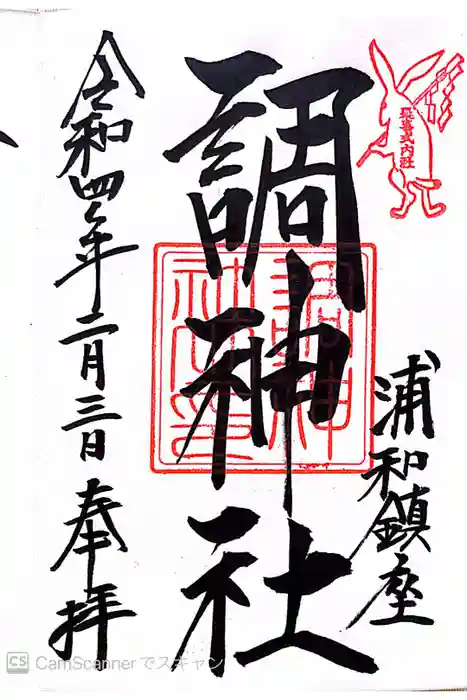 延喜式内社
浦和鎮座
調神社
調神社印
令和四年二月三日 奉拝
CS CamScannerでスキャン